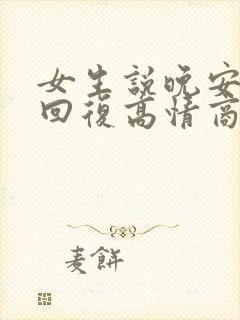 女生說晚安
回復高情商
麦餅